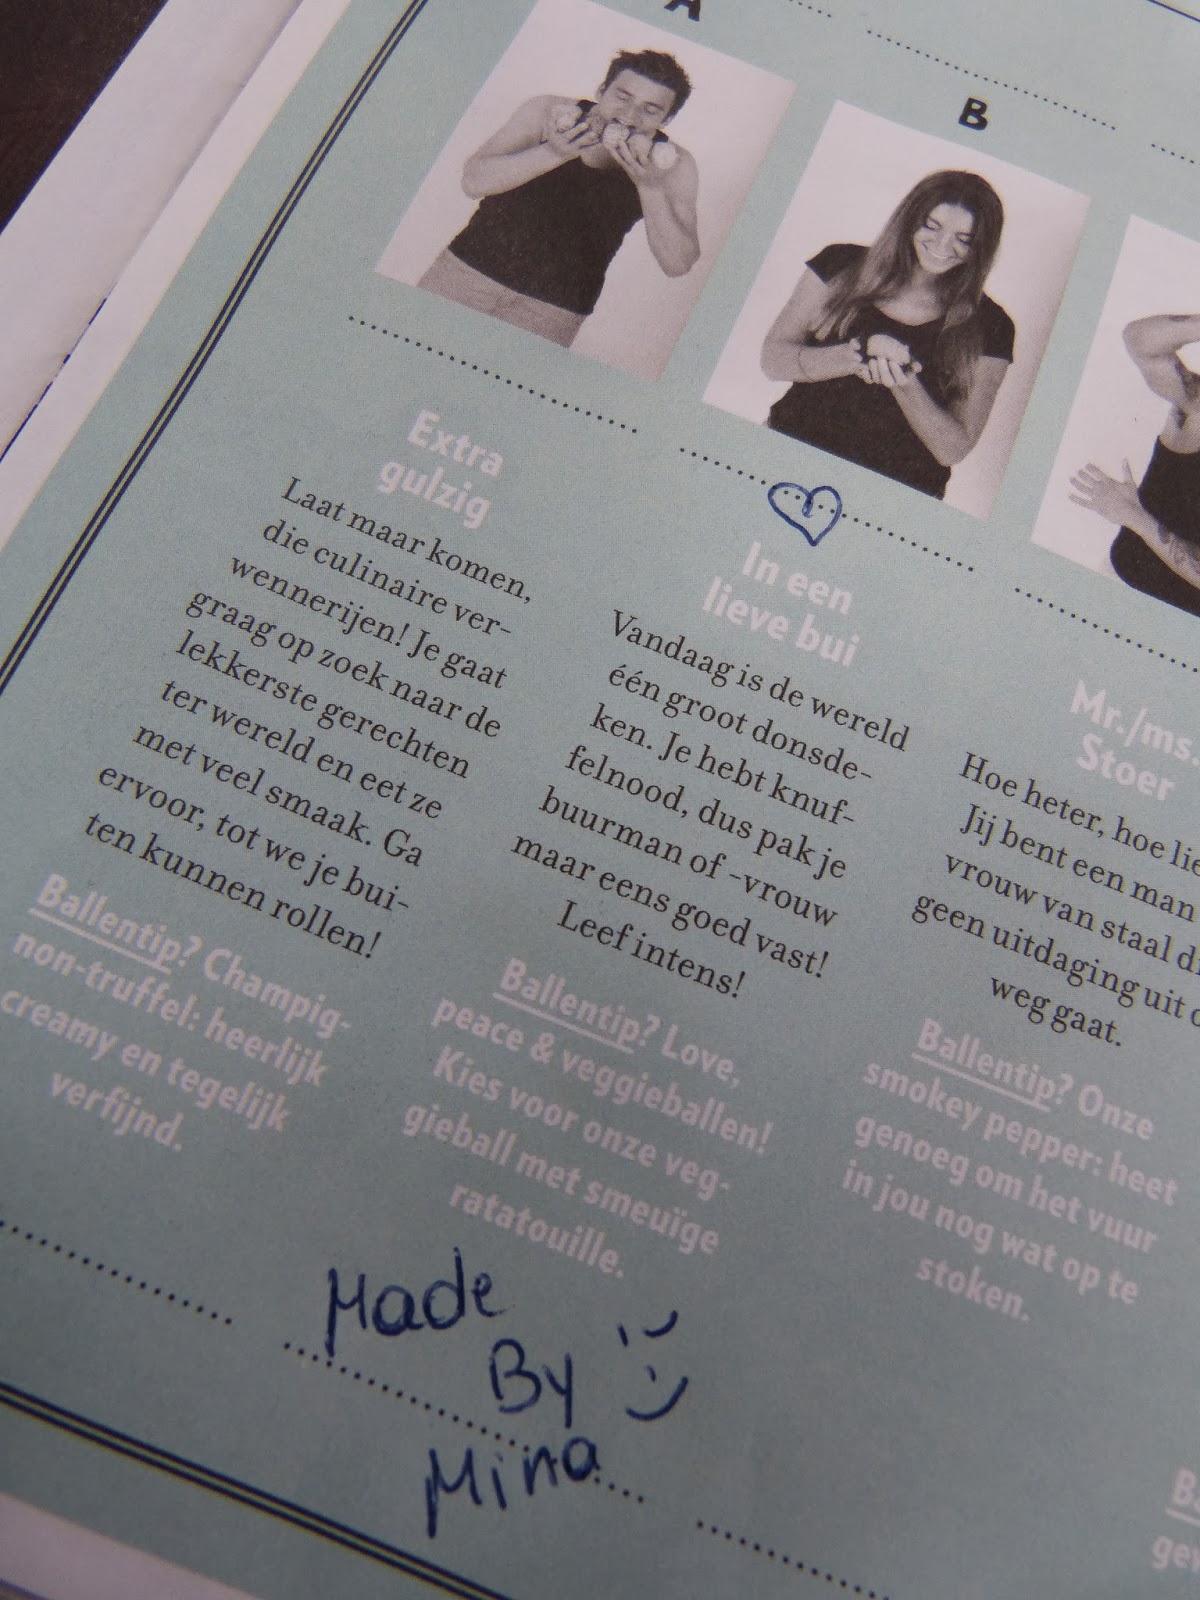 A
Extra
gulzig
Laat maar komen,
die culinaire ver-
wennerijen! Je gaat
graag op zoek naar de
lekkerste gerechten
ter wereld en eet ze
met veel smaak. Ga
ervoor, tot we je bui-
ten kunnen rollen!
Ballentip? Champig-
non-truffel: heerlijk
creamy en tegelijk
verfijnd.
B
In een
lieve bui
Vandaag is de wereld
één groot donsde-
ken. Je hebt knuf-
felnood, dus pak je
buurman of -vrouw
maar eens goed vast!
Leef intens!
Ballentip? Love,
peace & veggieballen!
Kies voor onze veg-
gieball met smeuïge
ratatouille.
Mr./ms.
Stoer
Hoe heter, hoe lie
Jij bent een man
vrouw van staal di
geen uitdaging uit
weg gaat.
Ballentip? Onze
smokey pepper: heet
genoeg om het vuur
in jou nog wat op te
stoken.
Made
By
Mina